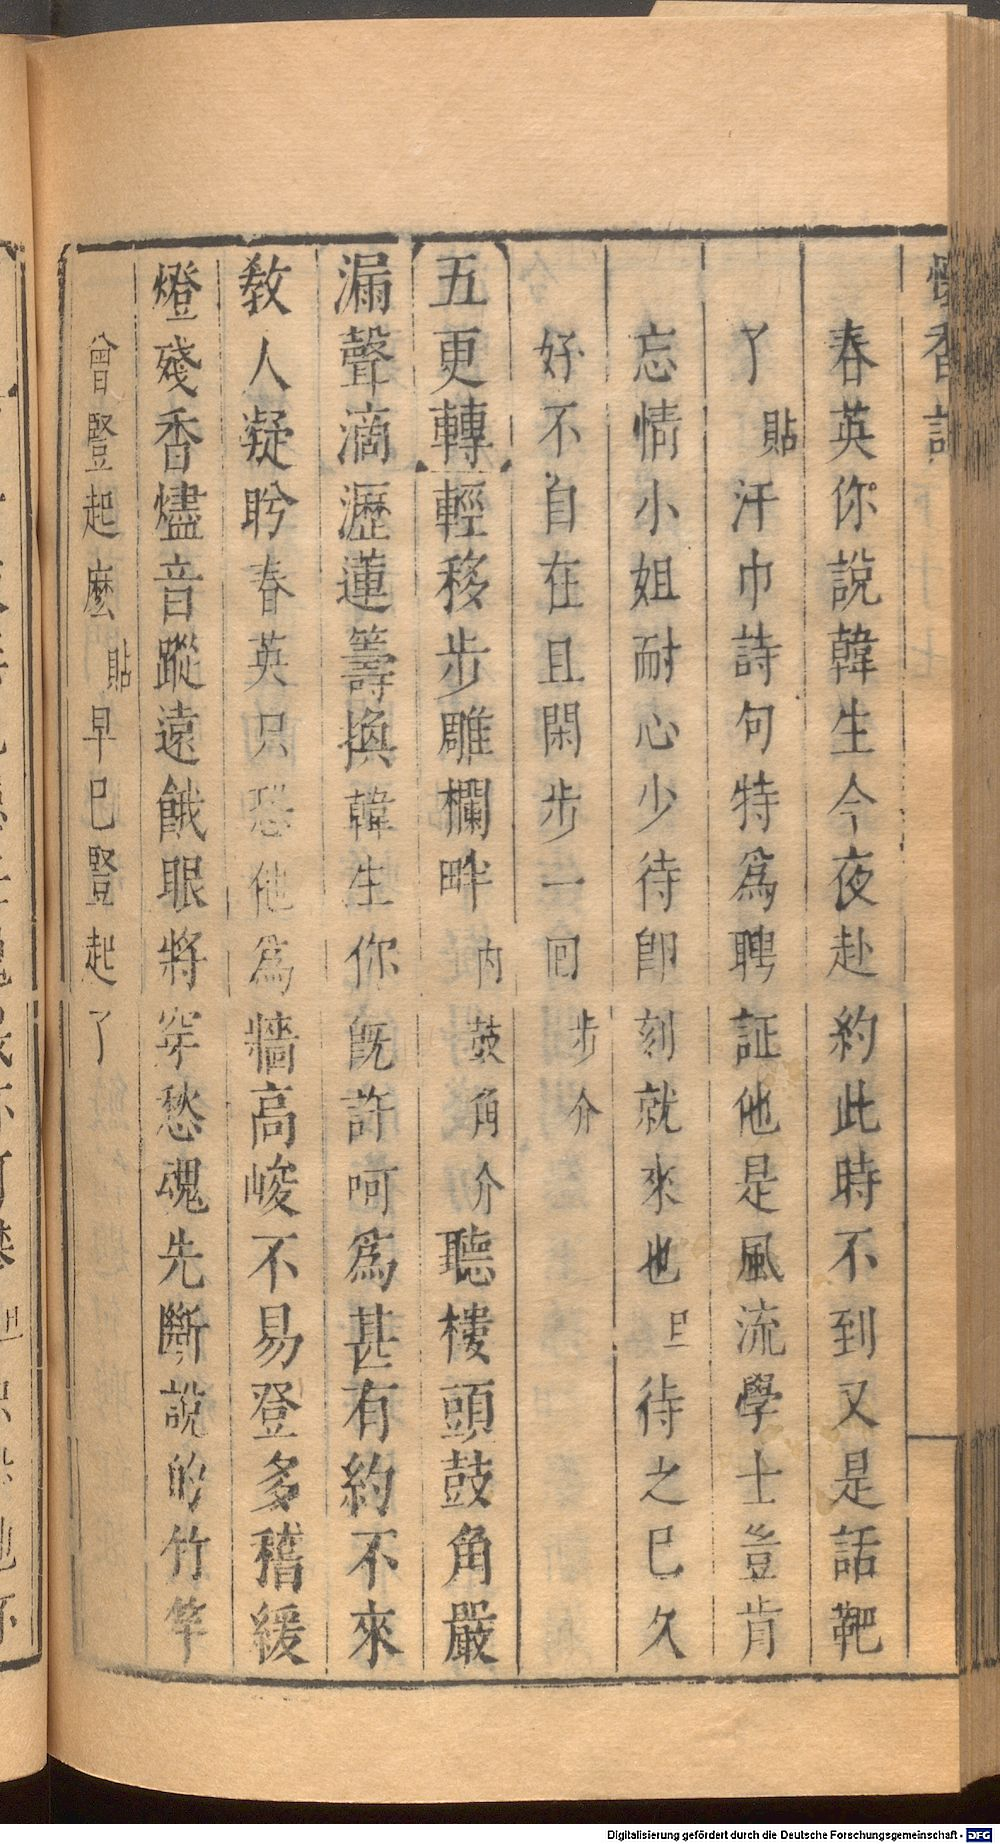 懷香記
春英你說韓生今夜赴約此時不到又是話靶
了貼汗巾詩句特爲聘証他是風流學士豈肯
忘情小姐耐心少待卽刻就來也旦待之已久
好不自在且閑步一回步介
五更轉輕移步雕欄畔內鼓角介聽樓頭鼓角嚴
漏聲滴瀝蓮籌換韓生你旣許呵爲甚有約不來
敎人凝盻春英只恐他爲牆高峻不易登多稽緩
燈殘香燼音蹤遠餓眼將穿愁魂先斷說的竹竿
曾豎起麽貼早已豎起了
Digitalisierung gefördert durch die Deutsche Forschungsgemeinschaft - DFG